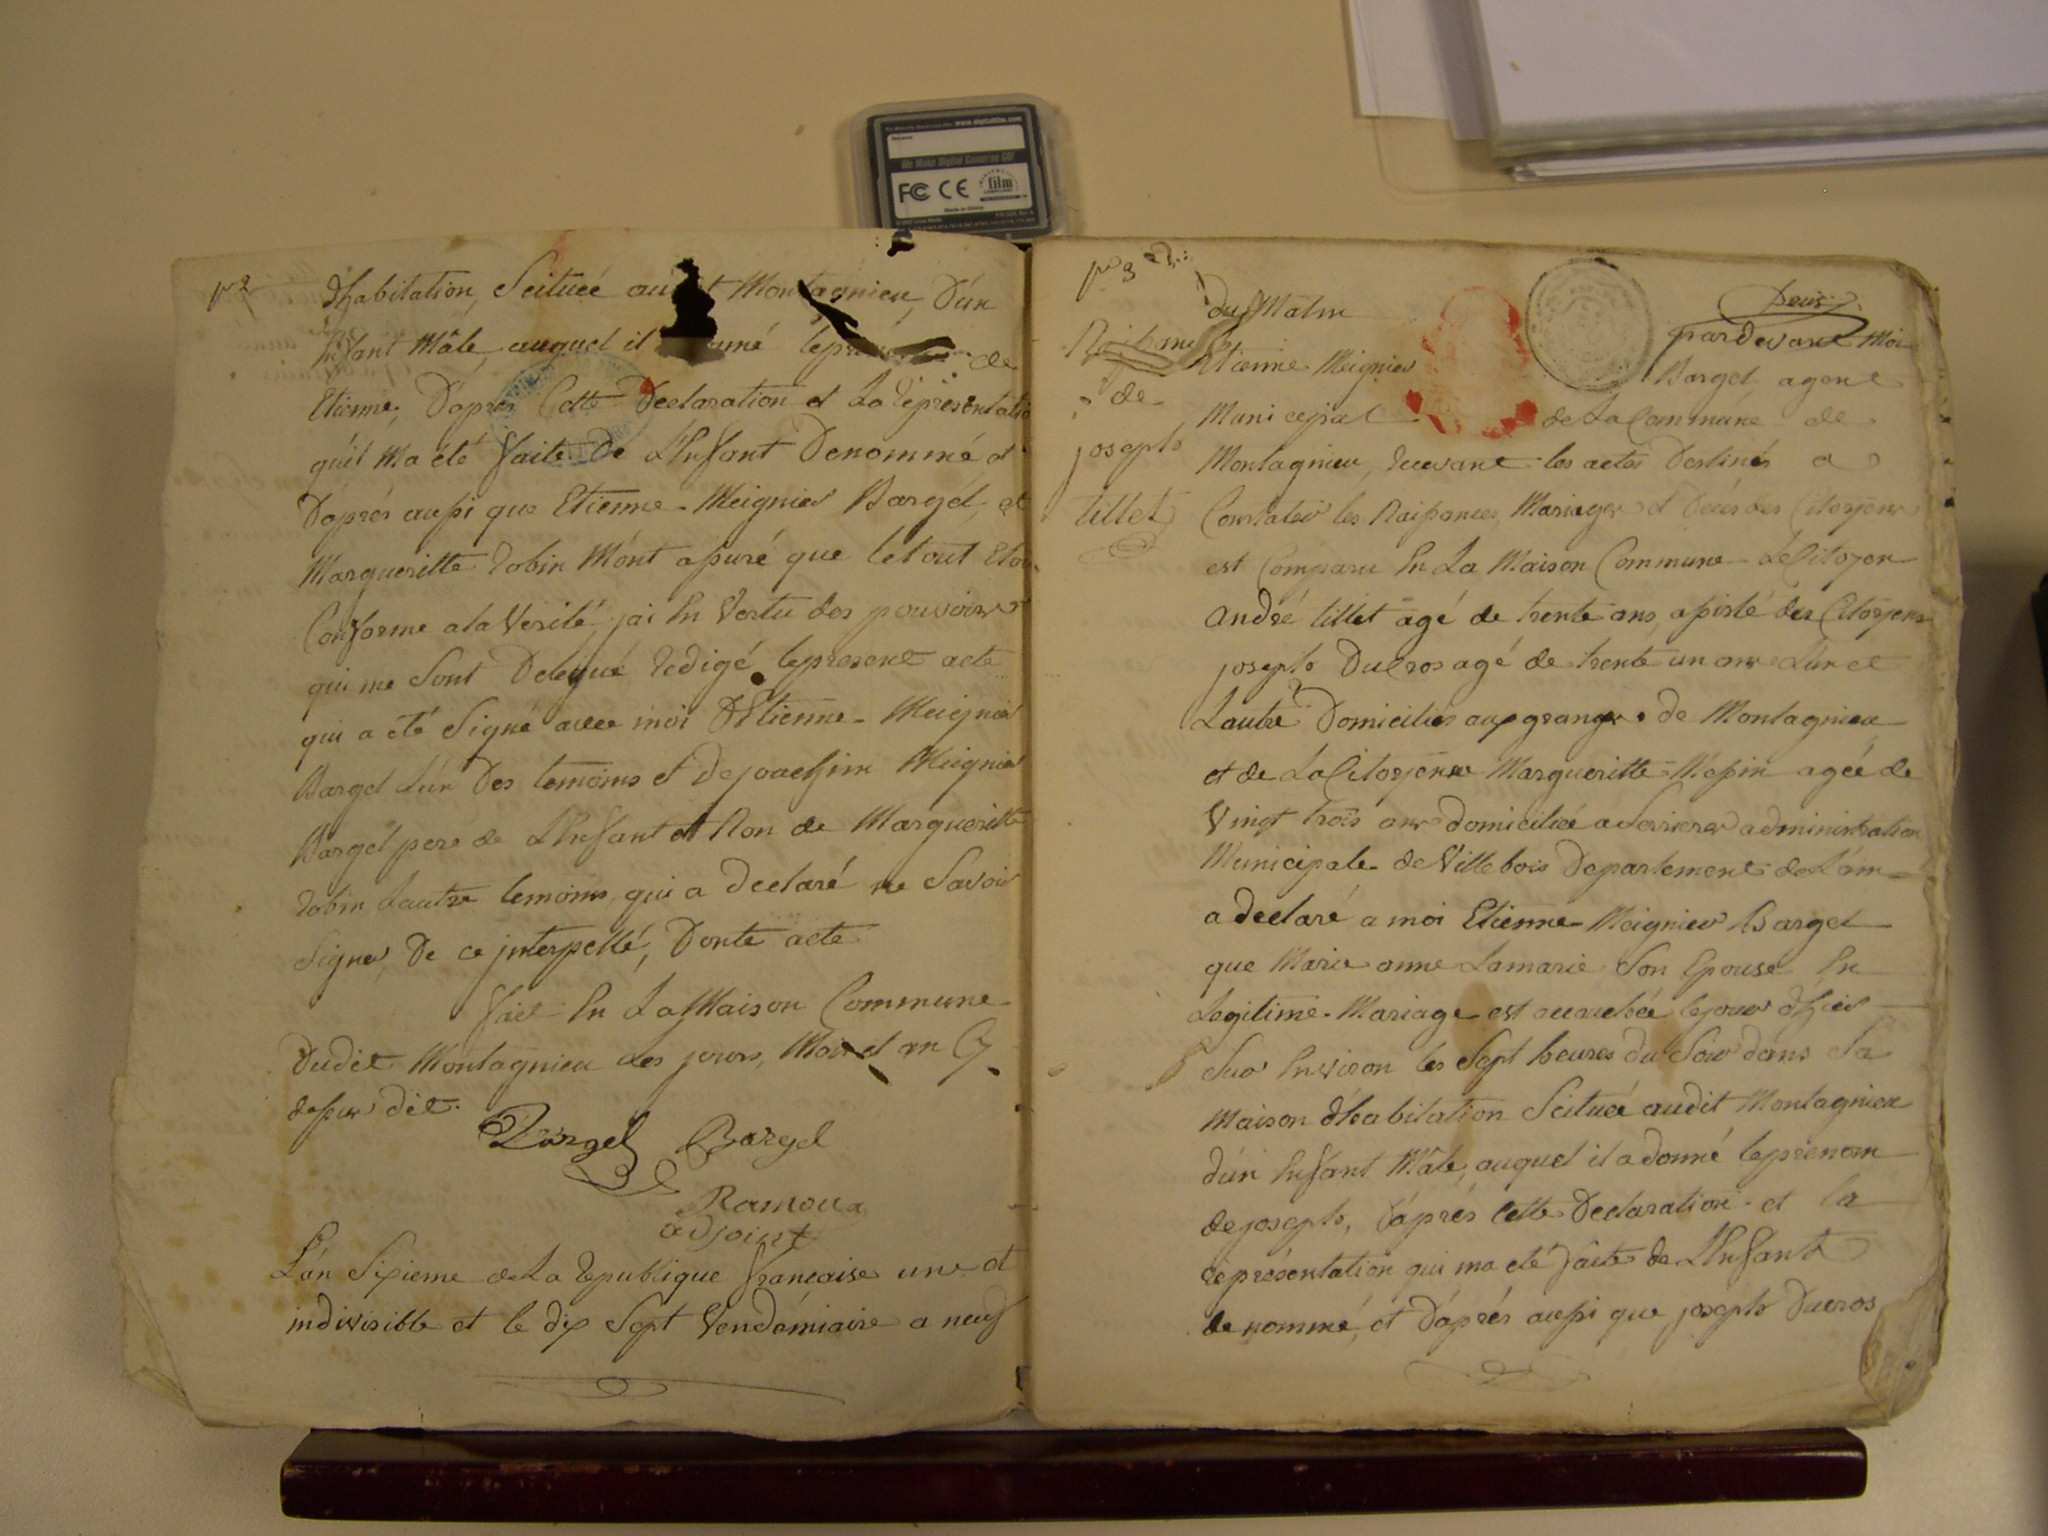 www.digitalfilm.com
We Make Digital Cameras GO!
FC CE
film
dhabitation, Scituée audit Montagnieu, D'un
Enfant Mâle, auquel il de
Etienne, D'aprés Cette Declaration et La représentation
qu'il M'a été faite De L'Enfant Denommé et
D'aprés aussi que Etienne Meignier Bargel, et
Margueritte robin M'ont assuré que le tout Etoit
Conforme a la Verité, j'ai En Vertu des pouvoirs
qui me Sont Delegué redigé le present acte
qui a été Signé avec moi D'Etienne Meignier
Bargel L'un Des temoins et de joachim Meignier
Bargel pere de L'Enfant et Non de Margueritte
robin Lautre temoins, qui a declaré ne Savoir
Signer, De ce interpellé, Donte acte
fait En La Maison Commune
Dudit Montagnieu Les jours, Mois et an Cy
dessus dit.
Bargel Bargel
Ramoux
adjoint
L'an Sixieme de La republique francaise une et
indivisible et le dix Sept Vendémiaire a neuf
du Matin
pardevant Moi
Etienne Meignier Bargel, agent
Municipal de La Commune de
Montagnieu, recevant les actes Destinés a
Constater les Naissances, Mariages et Décés des Citoyens
est Comparu En La Maison Commune Le Citoyen
André tillet agé de trente ans, assisté des Citoyens
joseph Ducros agé de trente un ans L'un et
Lautre Domiciliés aux granges de Montagnieu
et de La Citoyenne Margueritte agée de
Vingt trois ans domiciliée a Serrieres administration
Municipale de Villebois Departement de L'ain
a declaré a moi Etienne Meignier Bargel
que Marie anne Lamarie Son Epouse En
Legitime Mariage est accouchée le jour d'hier
Sur Environ les Sept heures du Soir dans Sa
Maison d'habitation Scituée audit Montagnieu
d'un Enfant Mâle, auquel il a donné le prenom
de joseph, D'aprés cette Declaration et la
représentation qui m'a été faite de L'Enfant
denommé, et D'aprés aussi que joseph Ducros
Naissance
de
joseph
tillet